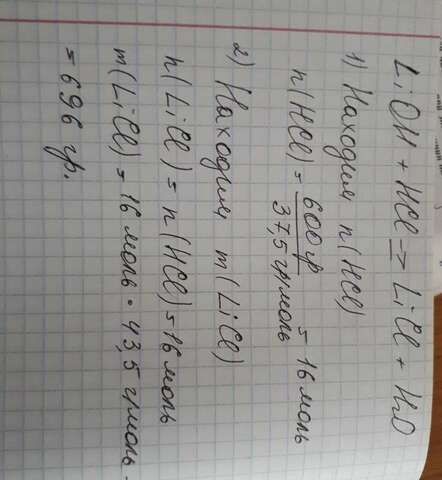 LiOH + HCl => LiCl + H2O
1) Находим n(HCl)
n(HCl) = 600 гр / 37,5 гр/моль = 16 моль
2) Находим m(LiCl)
n(LiCl) = n(HCl) = 16 моль
m(LiCl) = 16 моль · 43,5 гр/моль -
= 696 гр.